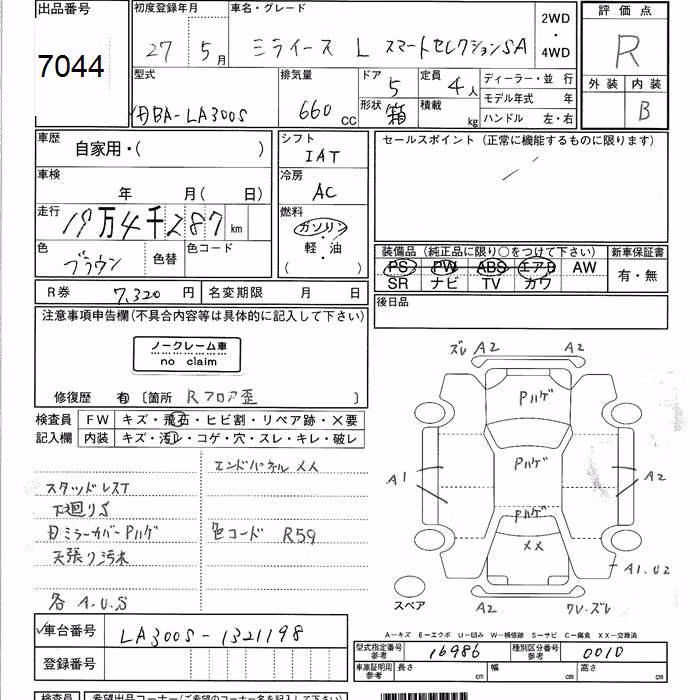 出品番号 初度登録年月 車名・グレード 2WD・4WD 評価点
7044 27年 5月 ミライース L スマートセレクションSA R
型式 排気量 ドア 5 定員 4人 ディーラー・並行 外装 内装
DBA-LA300S 660cc 形状 箱 積載 kg モデル年式 年 B
ハンドル 左・右
車歴 自家用・( ) シフト IAT セールスポイント (正常に機能するものに限ります)
車検 年 月(日) 冷房 AC
走行 19万4千287km 燃料 ガソリン・軽・油 ( )
色 ブラウン 色替 色コード
装備品 (純正品に限り○をつけて下さい) 新車保証書
PS PW ABS エアB AW 有・無
SR ナビ TV カワ
R券 7,320円 名変期限 月 日 後日品
注意事項申告欄(不具合内容等は具体的に記入して下さい)
ノークレーム車
no claim
修復歴 有 〔箇所 Rフロア歪 〕
検査員 FW キズ・飛石・ヒビ割・リペア跡・X要
記入欄 内装 キズ・汚レ・コゲ・穴・スレ・キレ・破レ
エンドパネル XX
スタッドレスT
下廻りS
色コード R59
天張り汚木
各 A.U.S
ズレ A2 A2
Pハゲ
Pハゲ
A1 A2
Pハゲ
XX
A1.U2
スペア
A2 ワレ・ズレ
車台番号 LA300S-1321198
登録番号
A-キズ E-エクボ U-凹み W-補修跡 S-サビ C-腐食 XX-交換済
型式指定番号 参考 16986 種別区分番号 参考 0010
車庫証明用 参考 長さ cm 幅 cm 高さ cm
検査員 希望出品コーナー(ご希望のコーナー名を記入して下さい)